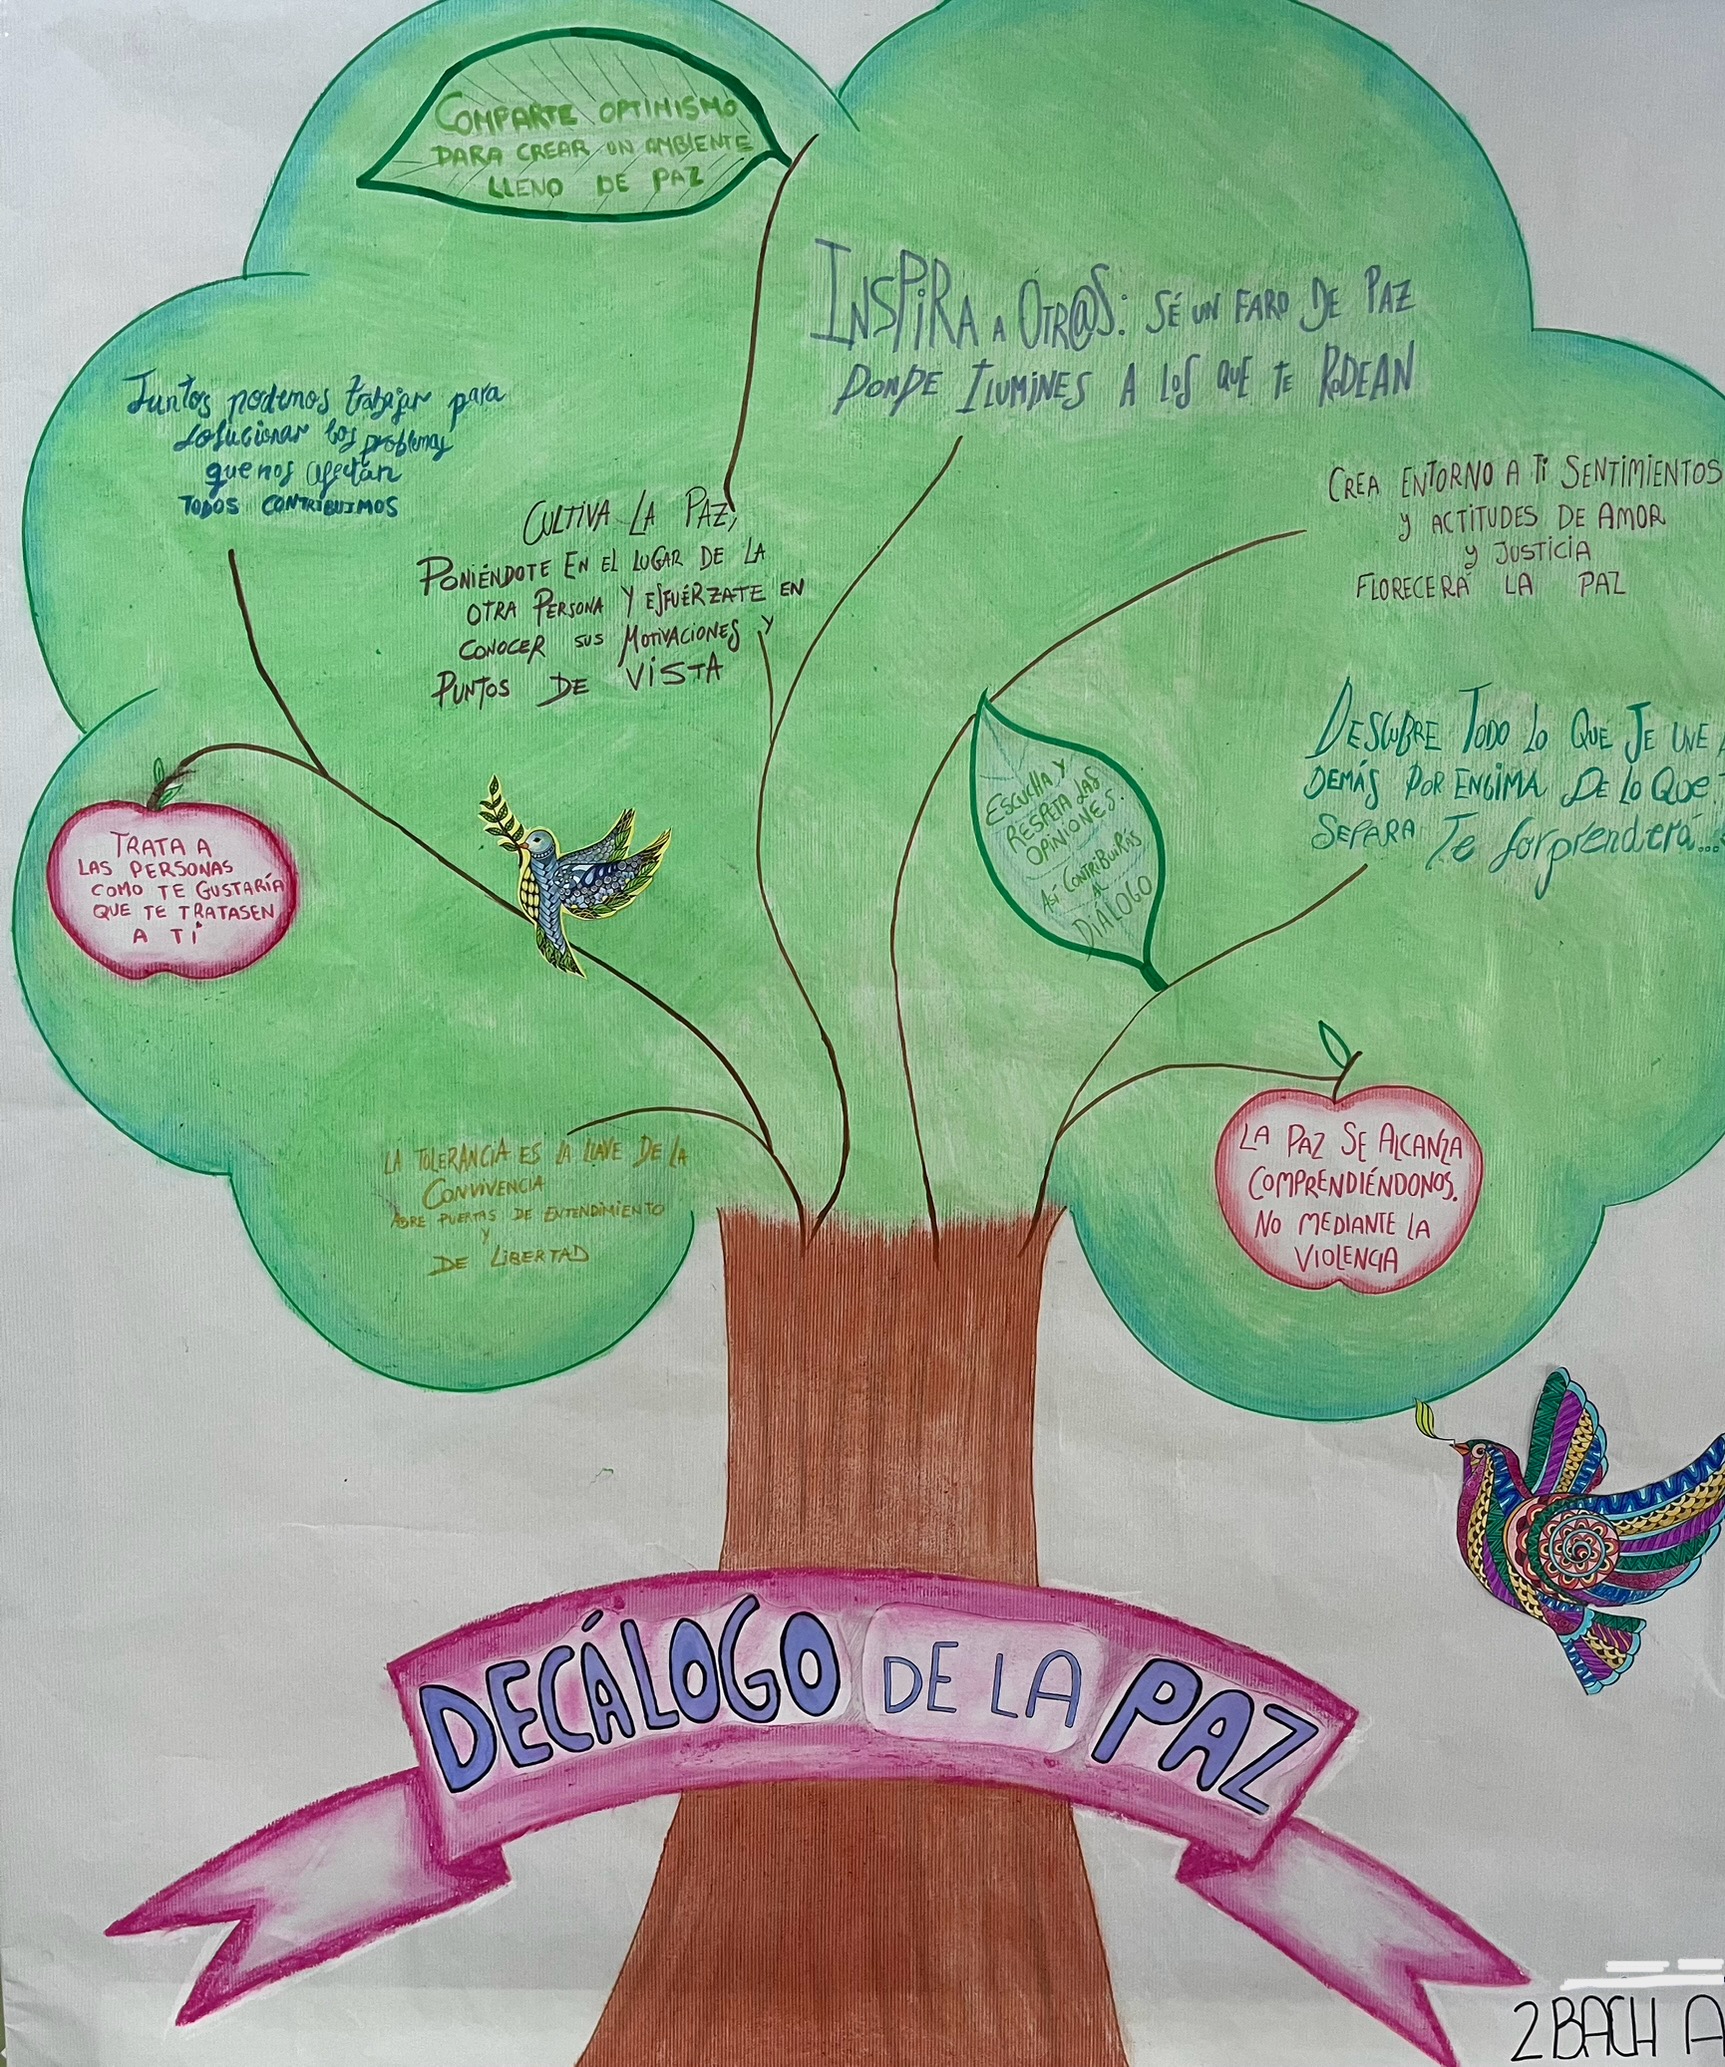 COMPARTE OPTIMISMO
PARA CREAR UN AMBIENTE
LLENO DE PAZ
INSPIRA A OTR@S: SÉ UN FARO DE PAZ
DONDE ILUMINES A LOS QUE TE RODEAN
Juntos podemos trabajar para
solucionar los problemas
que nos afectan
TODOS CONTRIBUIMOS
CULTIVA LA PAZ,
PONIÉNDOTE EN EL LUGAR DE LA
OTRA PERSONA Y ESFUÉRZATE EN
CONOCER SUS MOTIVACIONES Y
PUNTOS DE VISTA
CREA ENTORNO A TI SENTIMIENTOS
Y ACTITUDES DE AMOR
Y JUSTICIA
FLORECERÁ LA PAZ
DESCUBRE TODO LO QUE TE UNE A
DEMÁS POR ENCIMA DE LO QUE
SEPARA Te sorprenderá...
ESCUCHA Y
RESPETA LAS
OPINIONES.
ASÍ CONTRIBUIRÁS
AL
DIÁLOGO
TRATA A
LAS PERSONAS
COMO TE GUSTARÍA
QUE TE TRATASEN
A TI
LA TOLERANCIA ES LA LLAVE DE LA
CONVIVENCIA
ABRE PUERTAS DE ENTENDIMIENTO
Y
DE LIBERTAD
LA PAZ SE ALCANZA
COMPRENDIÉNDONOS.
NO MEDIANTE LA
VIOLENCIA
DECÁLOGO DE LA PAZ
2 BACH A